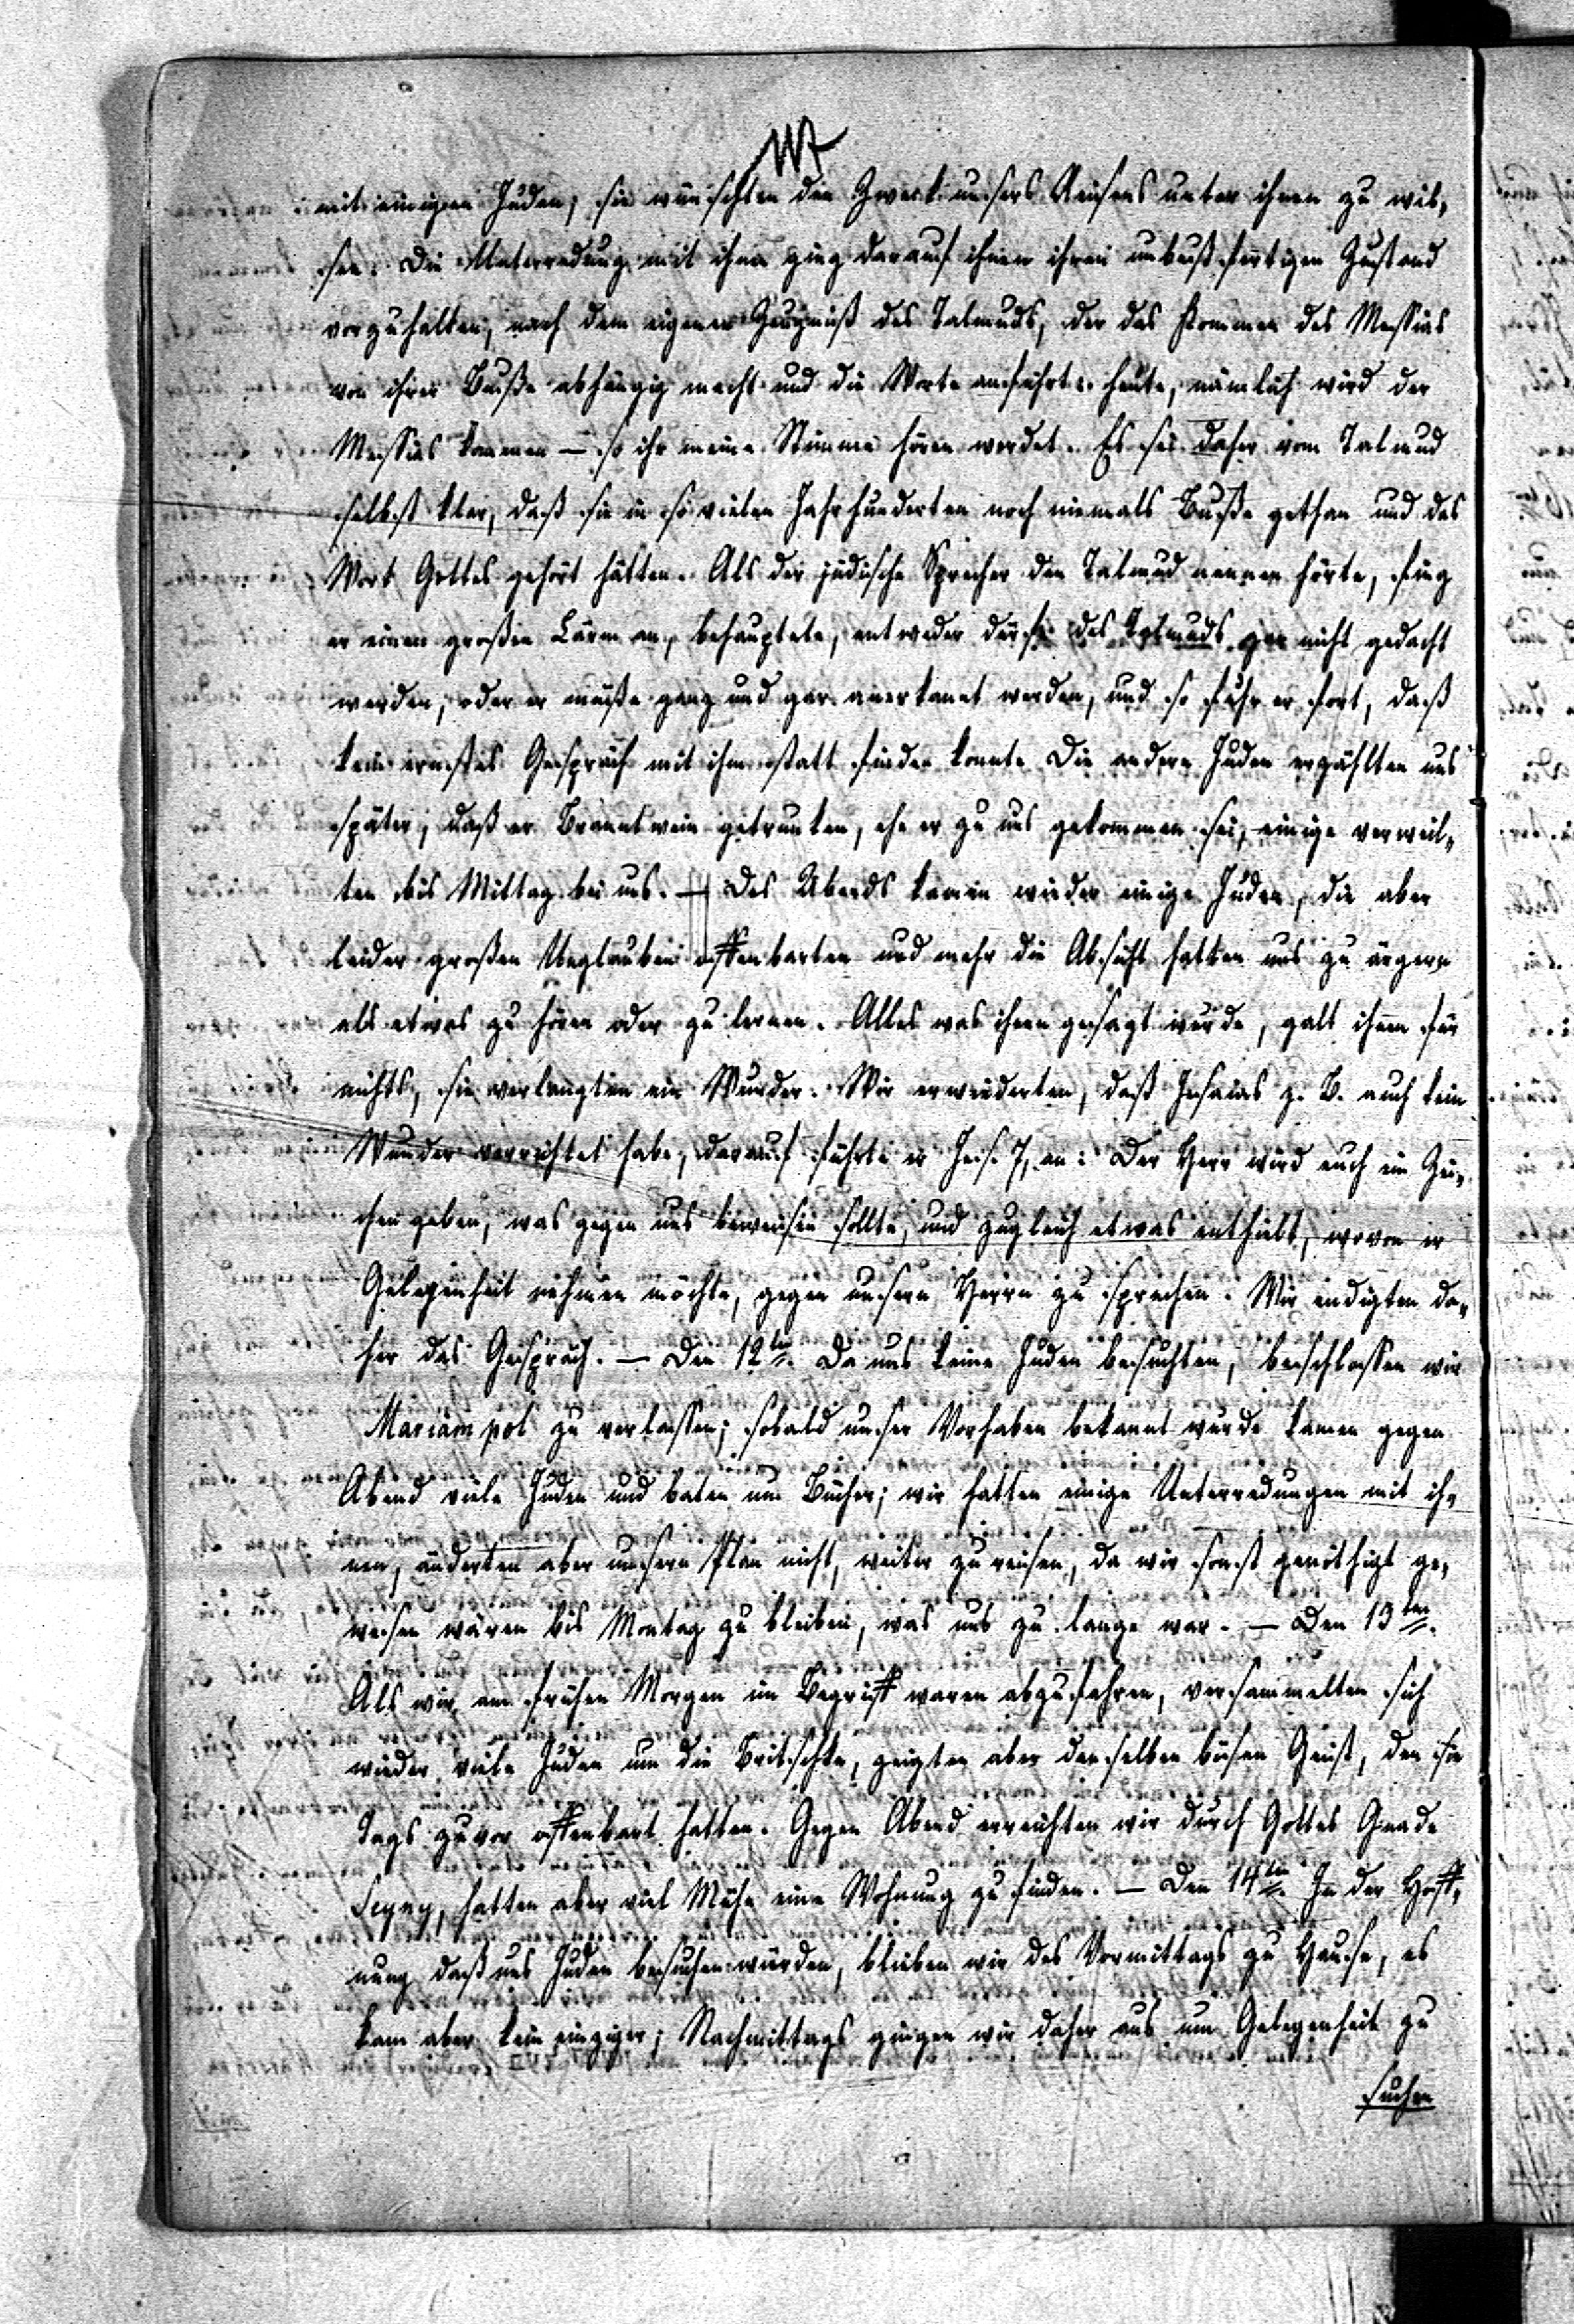 mit einigen Juden, sie wünschten den Zweck unsers Reisens unter ihnen zu wis„
sen. Die Unterredung mit ihnen ging darauf ihnen ihren unbußfertigen Zustand
vorzuhalten, nach dem eigenen Zeugniß des Talmuds, der das Kommen des Messias
von ihrer Buße abhängig macht und die Worte anführt: heute, nämlich wird der
Messias kommen — so ihr meine Stimme hören werdet. Es sei daher vom Talmud
selbst klar, daß sie in so vielen Jahrhunderten noch niemals Buße gethan und das
Wort Gottes gehört hätten. Als der jüdische Sprecher den Talmud nennen hörte, fing
er einen großen Lärm an, behauptete, entweder dürfe des Talmuds gar nicht gedacht
werden, oder er müße ganz und gar anerkannt werden, und so fuhr er fort, daß
kein ernstes Gespräch mit ihm statt finden konnte. Die andern Juden erzählten uns
später, daß er Branntwein getrunken, ehe er zu uns gekommen sei, einige verweil„
ten bis Mittag bei uns. — Des Abends kamen wieder einige Juden, die aber
leider großen Unglauben offenbarten und mehr die Absicht hatten uns zu ärgern
als etwas zu hören oder zu lernen. Alles was ihnen gesagt wurde, galt ihnen für
nichts, sie verlangten ein Wunder. Wir erwiederten, daß Jesaias z. B. auch kein
Wunder verrichtet habe, darauf führte er Jes. 7, an: Der Herr wird euch ein Zei„
chen geben, was gegen uns beweisen sollte, und zugleich etwas enthält, wovon er
Gelegenheit nehmen möchte, gegen unsern Herrn zu sprechen. Wir endigten da„
her das Gespräch. — Den 12ten. Da uns keine Juden besuchten, beschlossen wir
Mariampol zu verlassen; sobald unser Vorhaben bekannt wurde kamen gegen
Abend viele Juden und baten um Bücher; wir hatten einige Unterredungen mit ih„
nen, änderten aber unsern Plan nicht, weiter zu reisen, da wir sonst genöthigt ge„
wesen wären bis Montag zu bleiben, was uns zu lange war. — Den 13ten.
Als wir am frühen Morgen im Begriff waren abzufahren, versammelten sich
wieder viele Juden um die Britschke, zeigten aber denselben bösen Geist, den sie
tags zuvor offenbart hatten. Gegen Abend erreichten wir durch Gottes Gnade
Seyny, hatten aber viel Mühe eine Wohnung zu finden. — Den 14ten. In der Hoff„
nung daß uns Juden besuchen würden, blieben wir des Vormittags zu Hause, es
kam aber kein einziger; Nachmittags gingen wir daher aus um Gelegenheit zu
suchen